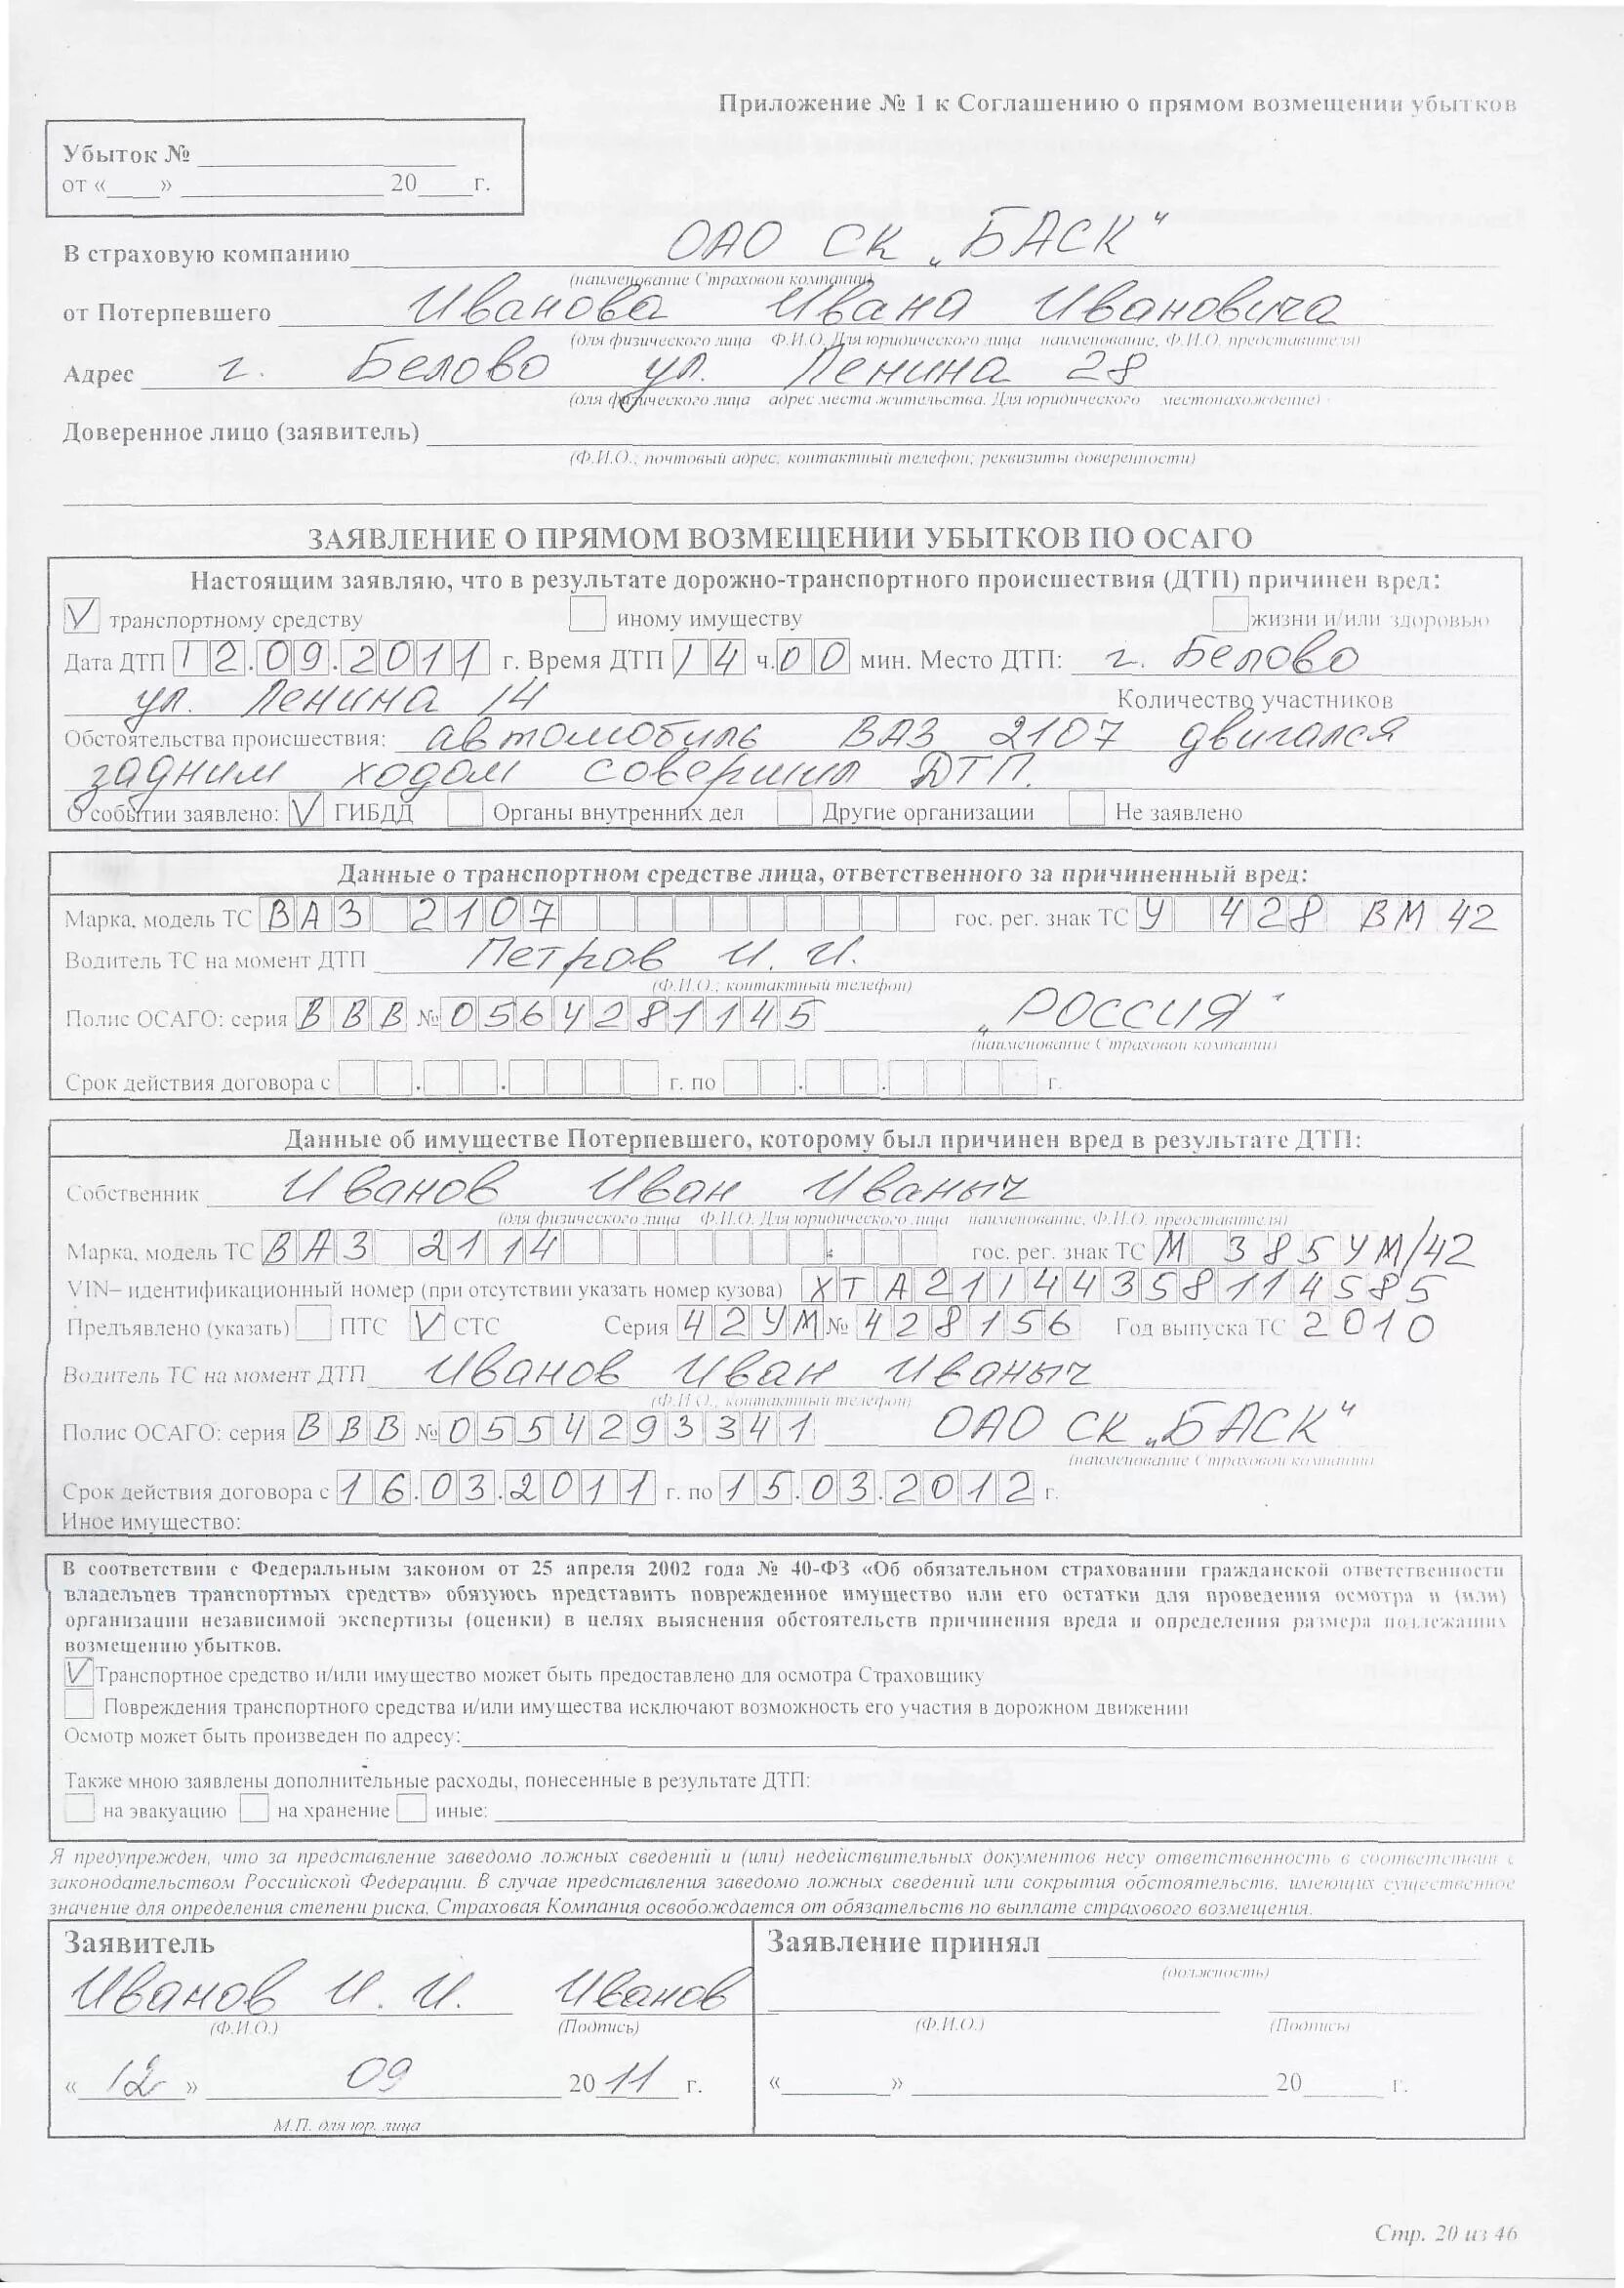 Приложение № 1 к Соглашению о прямом возмещении убытков
Убыток №
от « » 20 г.
В страховую компанию ОАО СК „БАСК“
(наименование Страховой компании)
от Потерпевшего Иванова Ивана Ивановича
(для физического лица Ф.И.О. Для юридического лица наименование, Ф.И.О. представителя)
Адрес г. Белово ул. Ленина 28
(для физического лица адрес места жительства. Для юридического местонахождение)
Доверенное лицо (заявитель)
(Ф.И.О.; почтовый адрес; контактный телефон; реквизиты доверенности)
ЗАЯВЛЕНИЕ О ПРЯМОМ ВОЗМЕЩЕНИИ УБЫТКОВ ПО ОСАГО
Настоящим заявляю, что в результате дорожно-транспортного происшествия (ДТП) причинен вред:
V транспортному средству иному имуществу жизни и/или здоровью
Дата ДТП 12.09.2011 г. Время ДТП 14 ч. 00 мин. Место ДТП: г. Белово
ул. Ленина 14 Количество участников
Обстоятельства происшествия: автомобиль ВАЗ 2107 двигался
задним ходом совершил ДТП.
О событии заявлено: V ГИБДД Органы внутренних дел Другие организации Не заявлено
Данные о транспортном средстве лица, ответственного за причиненный вред:
Марка, модель ТС ВАЗ 2107 гос. рег. знак ТС У 428 ВМ 42
Водитель ТС на момент ДТП Петров И. И.
(Ф.И.О.; контактный телефон)
Полис ОСАГО: серия ВВВ № 0564281145 „РОССИЯ“
(наименование Страховой компании)
Срок действия договора с . . г. по . . г.
Данные об имуществе Потерпевшего, которому был причинен вред в результате ДТП:
Собственник Иванов Иван Иваныч
(для физического лица Ф.И.О. Для юридического лица наименование, Ф.И.О. представителя)
Марка, модель ТС ВАЗ 2114 гос. рег. знак ТС М 385 УМ/42
VIN– идентификационный номер (при отсутствии указать номер кузова) ХТА21144358114585
Предъявлено (указать) ПТС V СТС Серия 42УМ № 428156 Год выпуска ТС 2010
Водитель ТС на момент ДТП Иванов Иван Иваныч
(Ф.И.О., контактный телефон)
Полис ОСАГО: серия ВВВ № 0554293341 ОАО СК „БАСК“
(наименование Страховой компании)
Срок действия договора с 16.03.2011 г. по 15.03.2012 г.
Иное имущество:
В соответствии с Федеральным законом от 25 апреля 2002 года № 40-ФЗ «Об обязательном страховании гражданской ответственности
владельцев транспортных средств» обязуюсь представить поврежденное имущество или его остатки для проведения осмотра и (или)
организации независимой экспертизы (оценки) в целях выяснения обстоятельств причинения вреда и определения размера подлежащих
возмещению убытков.
V Транспортное средство и/или имущество может быть предоставлено для осмотра Страховщику
Повреждения транспортного средства и/или имущества исключают возможность его участия в дорожном движении
Осмотр может быть произведен по адресу:
Также мною заявлены дополнительные расходы, понесенные в результате ДТП:
на эвакуацию на хранение иные:
Я предупрежден, что за представление заведомо ложных сведений и (или) недействительных документов несу ответственность в соответствии с
законодательством Российской Федерации. В случае представления заведомо ложных сведений или сокрытия обстоятельств, имеющих существенное
значение для определения степени риска, Страховая Компания освобождается от обязательств по выплате страхового возмещения.
Заявитель Заявление принял
(должность)
Иванов И. И. Иванов
(Ф.И.О.) (Подпись) (Ф.И.О.) (Подпись)
« 12 » 09 20 11 г. « » 20 г.
М.П. для юр. лица
Стр. 20 из 46